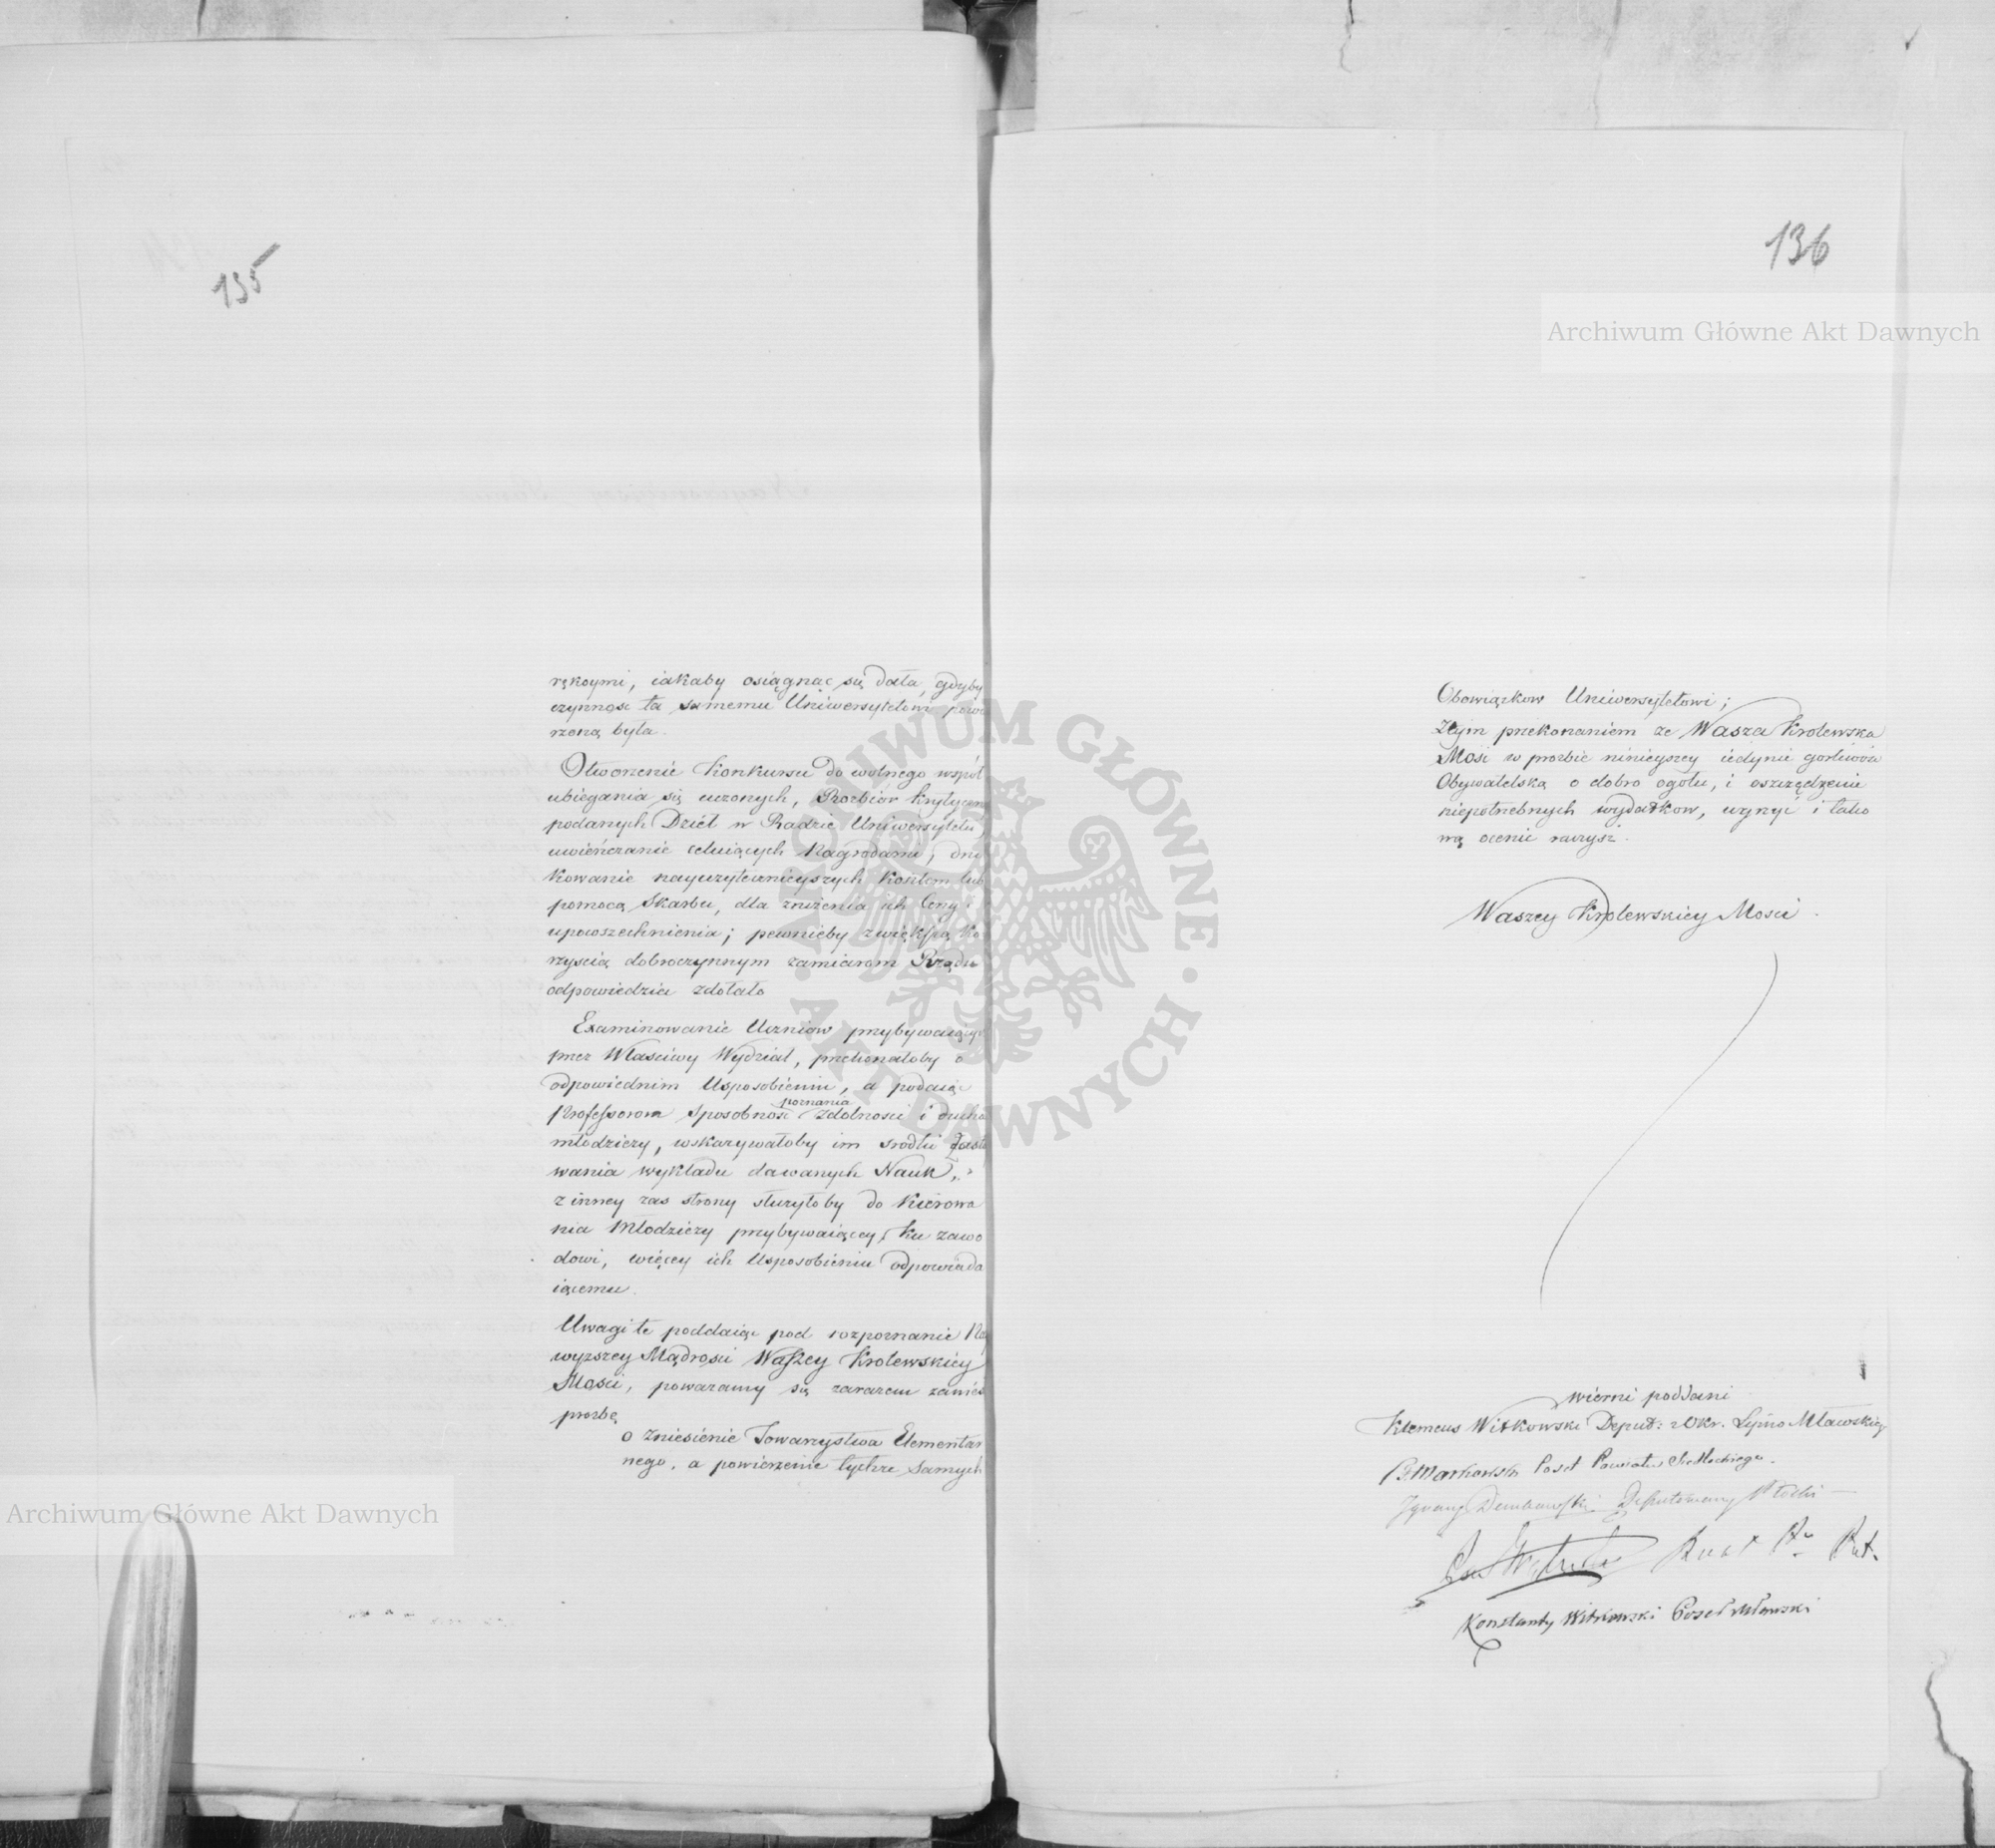 135
rękoymi, iakaby osiągnąc się dała, gdyby
czynnosc ta samemu Uniwersytetowi powie
rzoną była.
Otworzenie Konkursu do wolnego wspol
ubiegania się uczonych, Rozbiór krytyczny
podanych Dzieł w Radzie Uniwersytetu,
uwieńczanie celuiących Nagrodami, dru
kowanie nayużytecznieyszych kosztem lub
pomocą Skarbu, dla zniżenia ich Ceny i
upowszechnienia; pewnieby zwiększą ko
rzyscią dobroczynnym zamiarom Rządu
odpowiedziec zdołało
Examinowanie Uczniow przybywaiących
przez Własciwy Wydział, przekonałoby o
odpowiednim Usposobieniu, a podaiąc
Professorom Sposobnosc poznania zdolnosci i ducha
młodzieży, wskazywałoby im srodki Zasto
wania wykładu dawanych Nauk,
z inney zas strony służyłoby do Kierowa
nia Młodzieży przybywaiącey, ku zawo
dowi, więcey ich Usposobieniu odpowiada
iącemu.
Uwagi te poddaiąc pod rozpoznanie Nay
wyzszey Mądrosci Waszey Krolewskiey
Mosci, poważamy się zarazem zanieść
prozbę
o Zniesienie Towarzystwa Elementar
nego, a powierzenie tychże Samych
136
Obowiązkow Uniwersytetowi;
Ztym przekonaniem ze Wasza Krolewska
Mość w prozbie ninieyszey iedynie gorliwość
Obywatelską o dobro ogołu, i oszczędzenie
niepotrzebnych wydatkow, uyrzyć i tako
wą ocenić raczysz.
Waszey Krolewskiey Mosci.
wierni poddani
Klemens Witkowski Deput: z Okr. Lipno Mławskiego
B Markowski Poseł Powiatu Siedleckiego.
Ignacy Dembowski Deputowany Płocki
Konstanty Witkowski Poseł Mławski
Archiwum Główne Akt Dawnych
Archiwum Główne Akt Dawnych
ARCHIWUM GŁÓWNE · AKT DAWNYCH ·